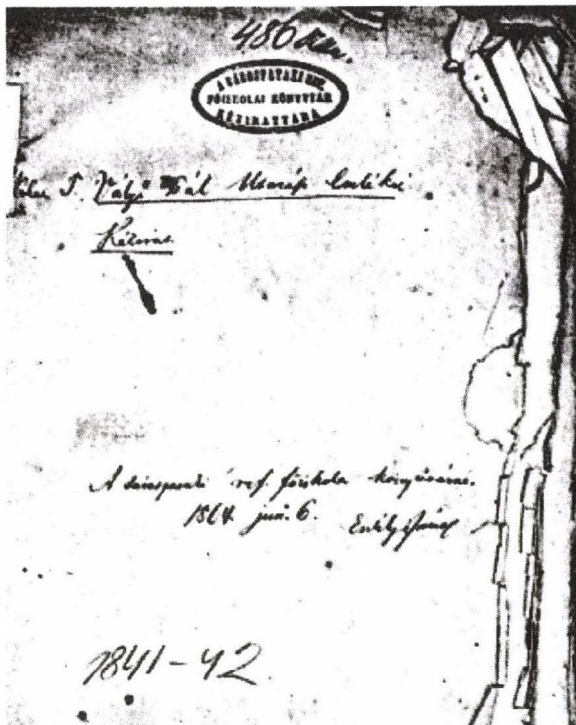 486
A SÁROSPATAKI REF.
FŐISKOLAI KÖNYVTÁR
KÉZIRATTÁRA
T. Vályi Pál
Kézirat
A sárospataki ref. főiskola könyvtáráné.
1864 jun. 6. Erdélyi János
1841-42